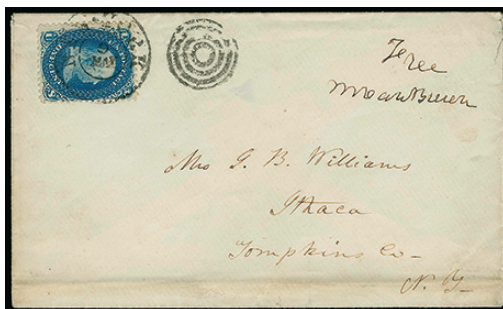 Free
MVanBuren
Mrs G. B. Williams
Ithaca
Tompkins Co-
N. Y-